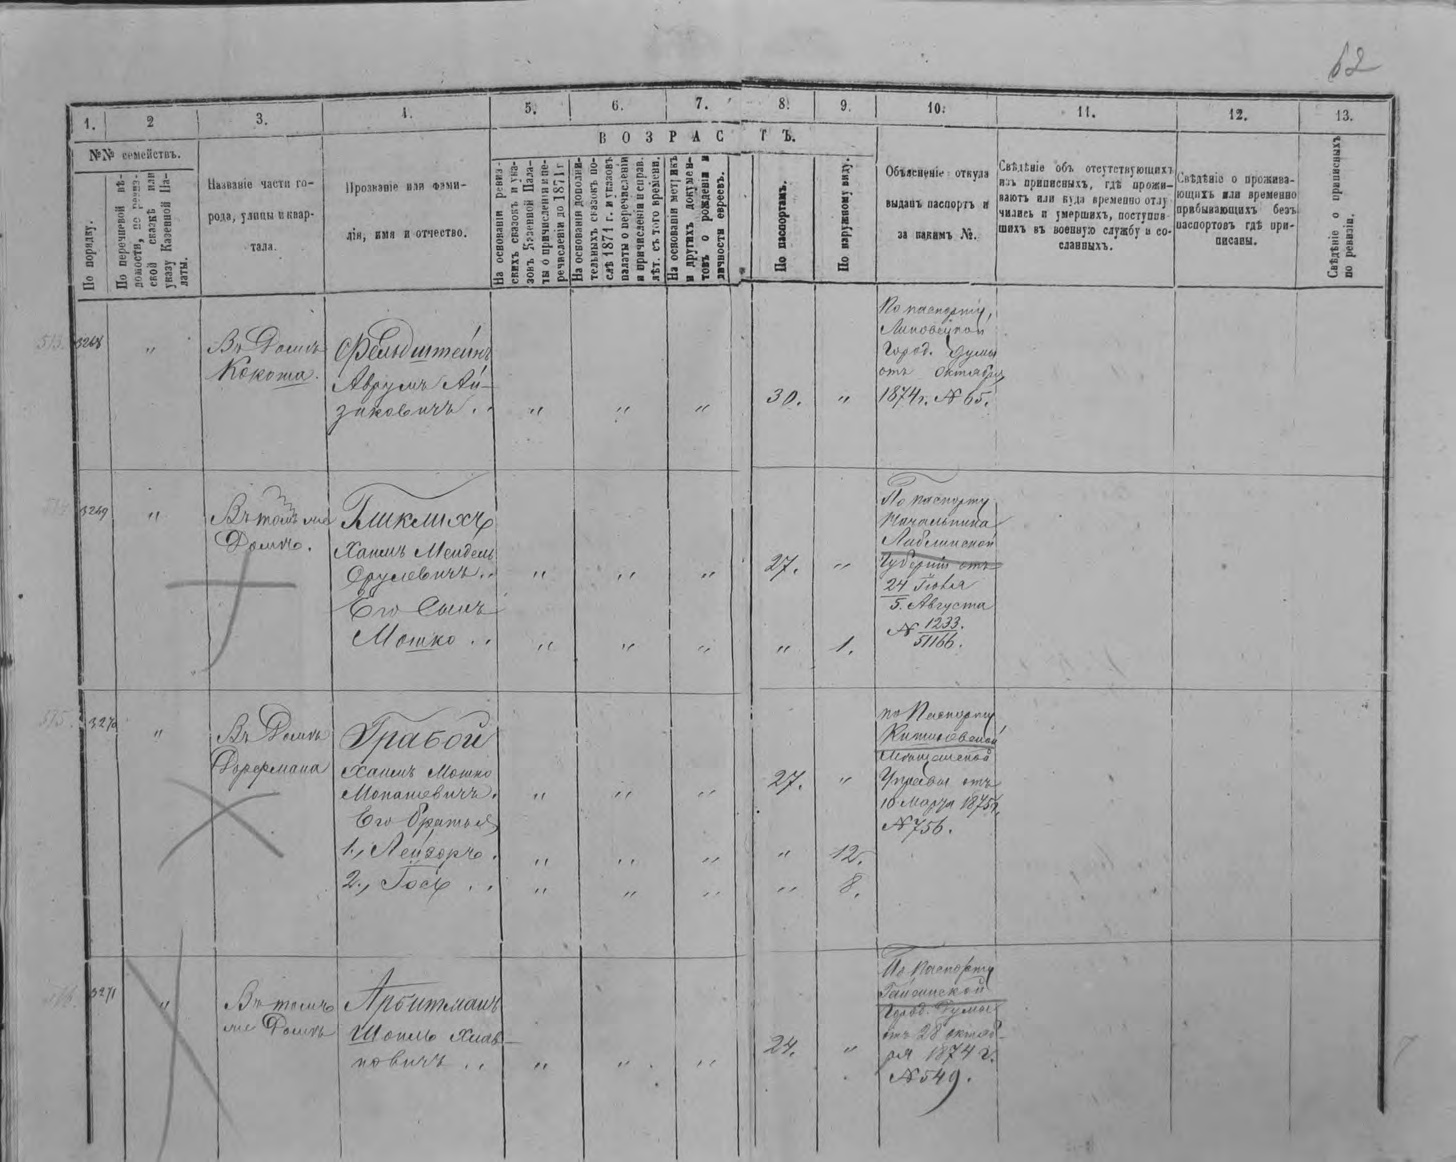 62
1. 2 3. 4. 5. 6. 7. 8. 9. 10. 11. 12. 13.
ВОЗРАСТЪ.
№№ семействъ.
По порядку.
По перечневой вѣ-
домости, по ревиз-
ской сказкѣ или
указу Казенной Па-
латы.
Названіе части го-
рода, улицы и квар-
тала.
Прозваніе или фами-
лія, имя и отчество.
На основаніи ревиз-
скихъ сказокъ и ука-
зовъ Казенной Пала-
ты о причисленіи и пе-
речисленіи до 1871 г.
На основаніи дополни-
тельныхъ сказокъ по-
слѣ 1871 г. и указовъ
палаты о перечисленіи
и причисленіи и справ.
лѣт. съ того времени.
На основаніи метрикъ
и другихъ докумен-
товъ о рожденіи и
личности евреевъ.
По паспортамъ.
По наружному виду.
Объясненіе откуда
выданъ паспортъ и
за какимъ №.
Свѣдѣніе объ отсутствующихъ
изъ приписныхъ, гдѣ прожи-
ваютъ или куда временно отлу-
чились и умершихъ, поступив-
шихъ въ военную службу и со-
сланныхъ.
Свѣдѣніе о прожива-
ющихъ или временно
прибывающихъ безъ
паспортовъ гдѣ при-
писаны.
Свѣдѣніе о приписныхъ
по ревизіи.
513. 3268 " Въ Домѣ
Кокота.
Фельдштейнъ
Аврумъ Ай-
зиковичъ . . " " " 30. "
По паспорту,
Липовецкой
Город. Думы
отъ Октября
1874 г. № 65.
3269 " Въ томъ же
Домѣ.
Гликлихъ
Хаимъ Мендель
Срулевичъ . . " " " 27. "
Его Сынъ
Мошко . . " " " " 1.
По паспорту
Начальника
Люблинской
Губерніи отъ
24 Іюля
5. Августа
№ 1233.
51166.
515. 3270 " Въ Домѣ
Дорфмана
Грабой
Хаимъ Мошко
Монашевичъ. " " " 27. "
Его братья
1., Лейзоръ. " " " " 12.
2., Іось . . " " " " 8.
по Паспорту
Кишиневской
Мѣщанской
Управы отъ
10 Марта 1875 г.
№ 756.
3271 " Въ томъ
же Домѣ
Арбитманъ
Шопль Хиль-
ковичъ . . " " . " 24. "
По Паспорту
Гайсинской
Город. Думы
отъ 28 октяб-
ря 1874 г.
№ 549.